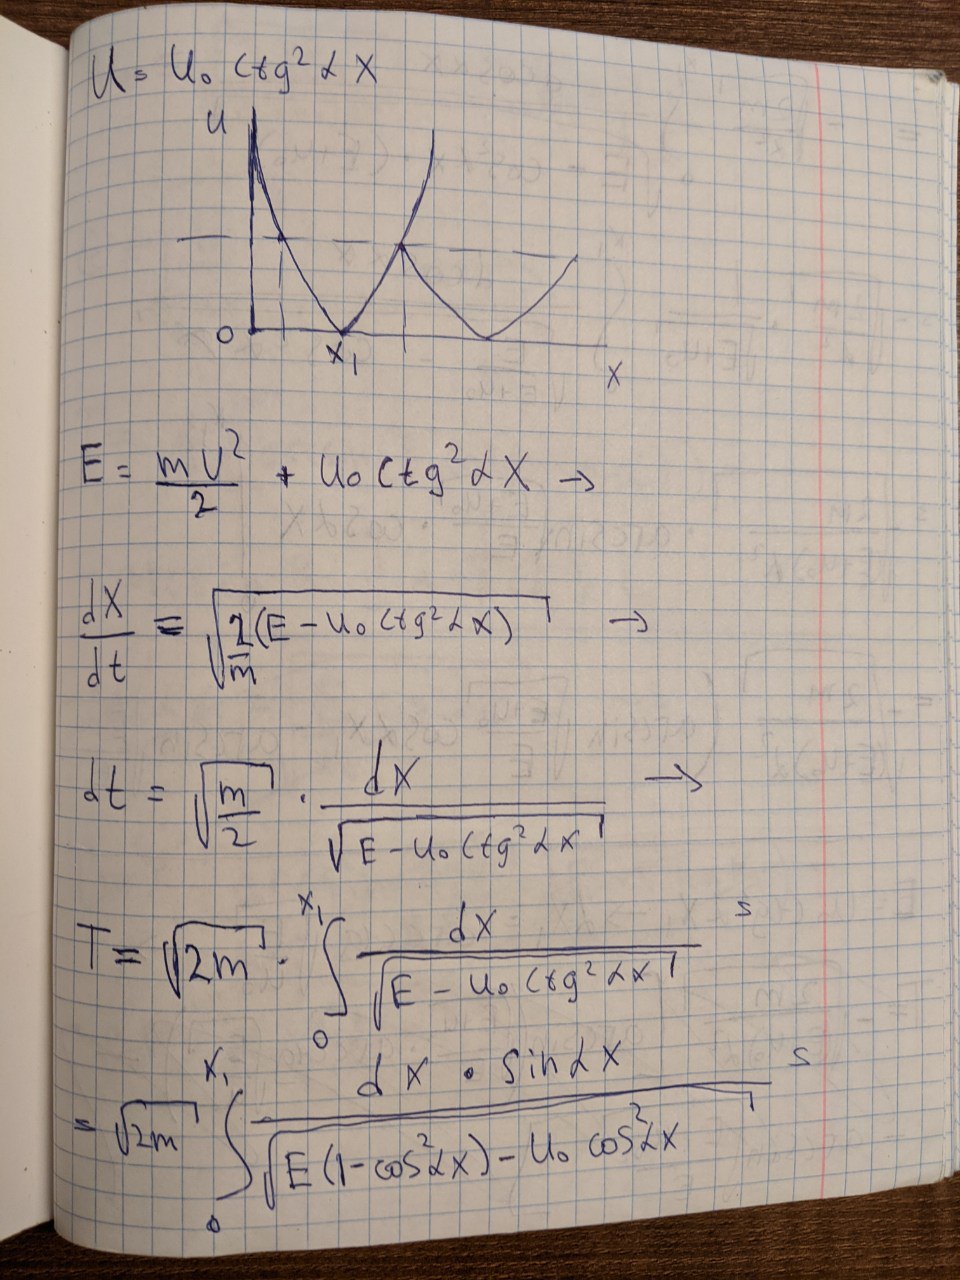 U = U₀ ctg² αX
U
0
X₁
X
E = mV²/2 + U₀ ctg² αX →
dX/dt = √(2/m (E - U₀ ctg² αX)) →
dt = √(m/2) · dX/√(E - U₀ ctg² αX) →
T = √(2m) · ∫₀^X₁ dX/√(E - U₀ ctg² αX) =
= √(2m) ∫₀^X₁ dX · sin αX/√(E(1-cos² αX) - U₀ cos² αX) =